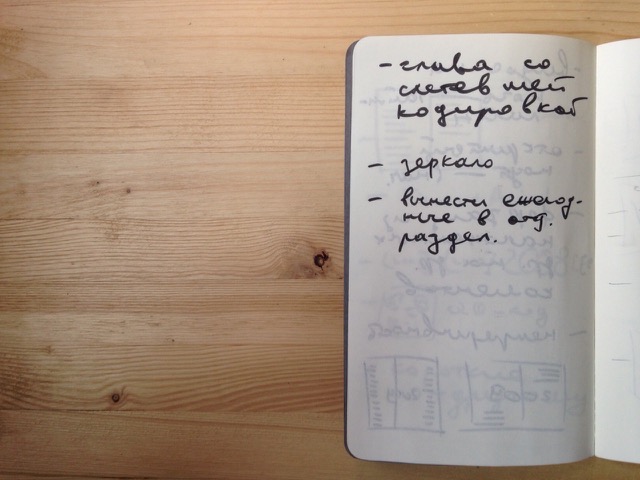 - глава со
слетевшей
кодировкой
- зеркало
- вынести ежегод-
ные в отд.
раздел.